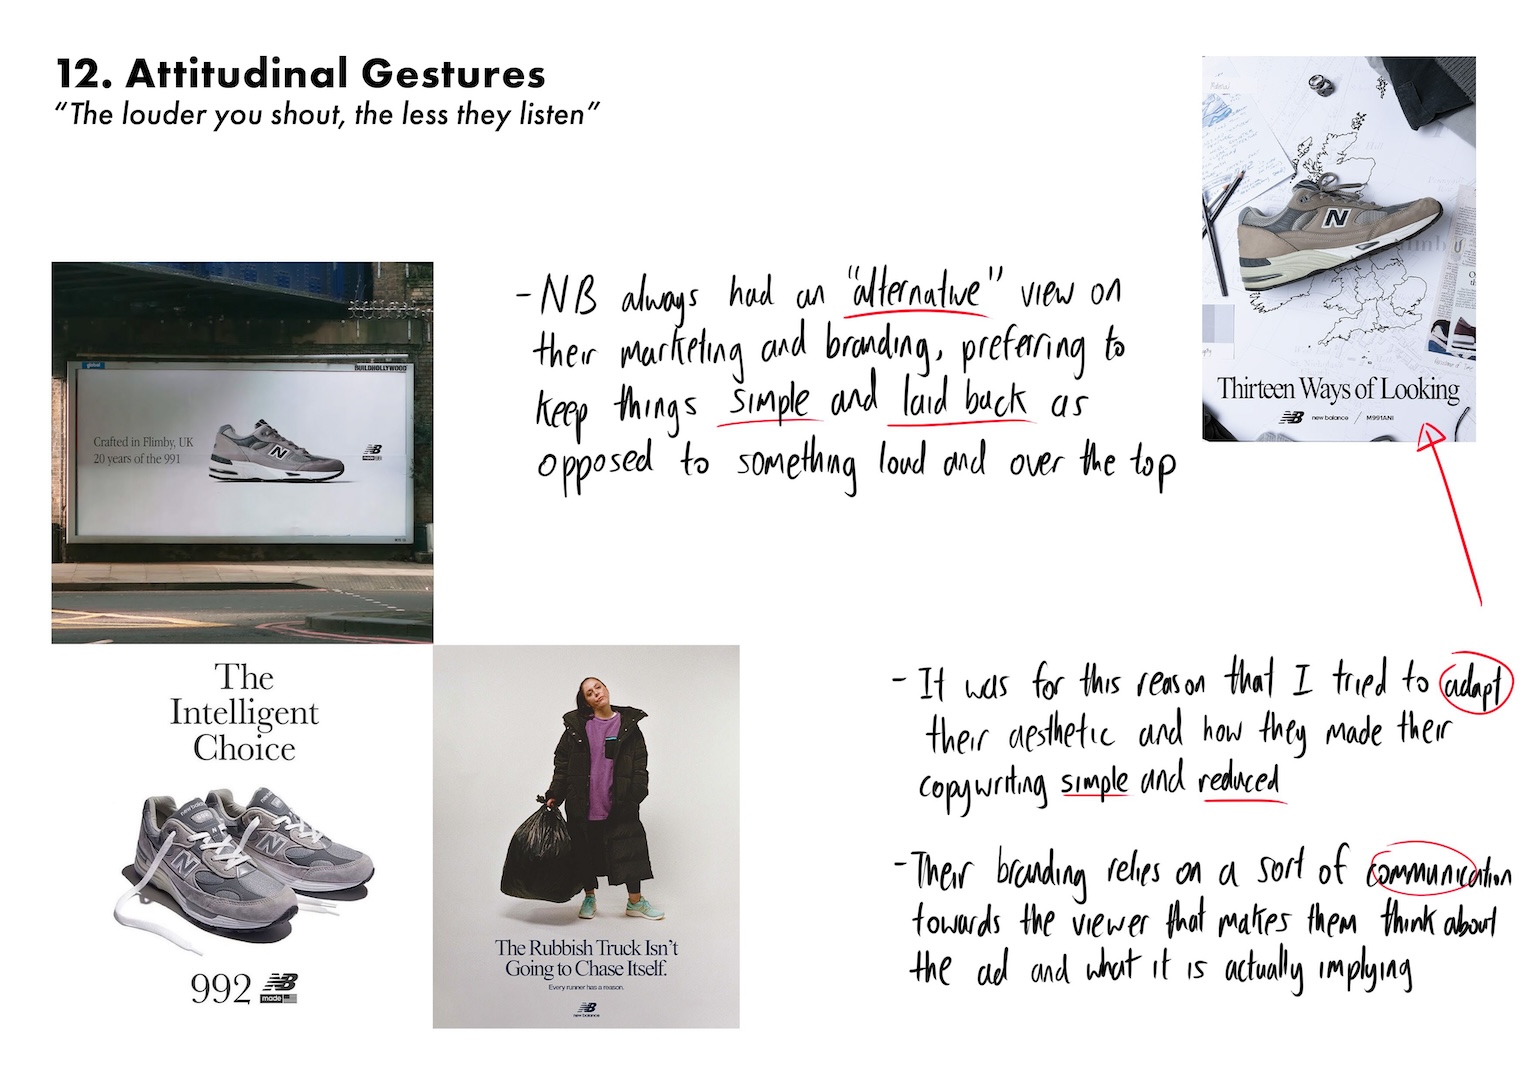 12. Attitudinal Gestures
“The louder you shout, the less they listen”
BUILDHOLLYWOOD
Crafted in Flimby, UK
20 years of the 991
N
NB
- NB always had an “alternative” view on
their marketing and branding, preferring to
keep things simple and laid back as
opposed to something loud and over the top
N
Thirteen Ways of Looking
NB new balance / M991ANI
The
Intelligent
Choice
new balance
N
N
992 NB
made
The Rubbish Truck Isn’t
Going to Chase Itself.
Every runner has a reason.
NB
new balance
- It was for this reason that I tried to adapt
their aesthetic and how they made their
copywriting simple and reduced
- Their branding relies on a sort of communication
towards the viewer that makes them think about
the ad and what it is actually implying